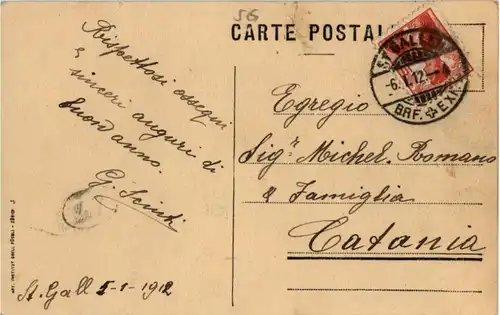 56
CARTE POSTALE
ST. GALLEN
-6.I.12.-4
BRF. EXP.
Rispettosi ossequi
e sinceri auguri di
buon anno.
Egregio
Sigr Michel. Romano
& Famiglia
Catania
St. Gall 5-1-1912